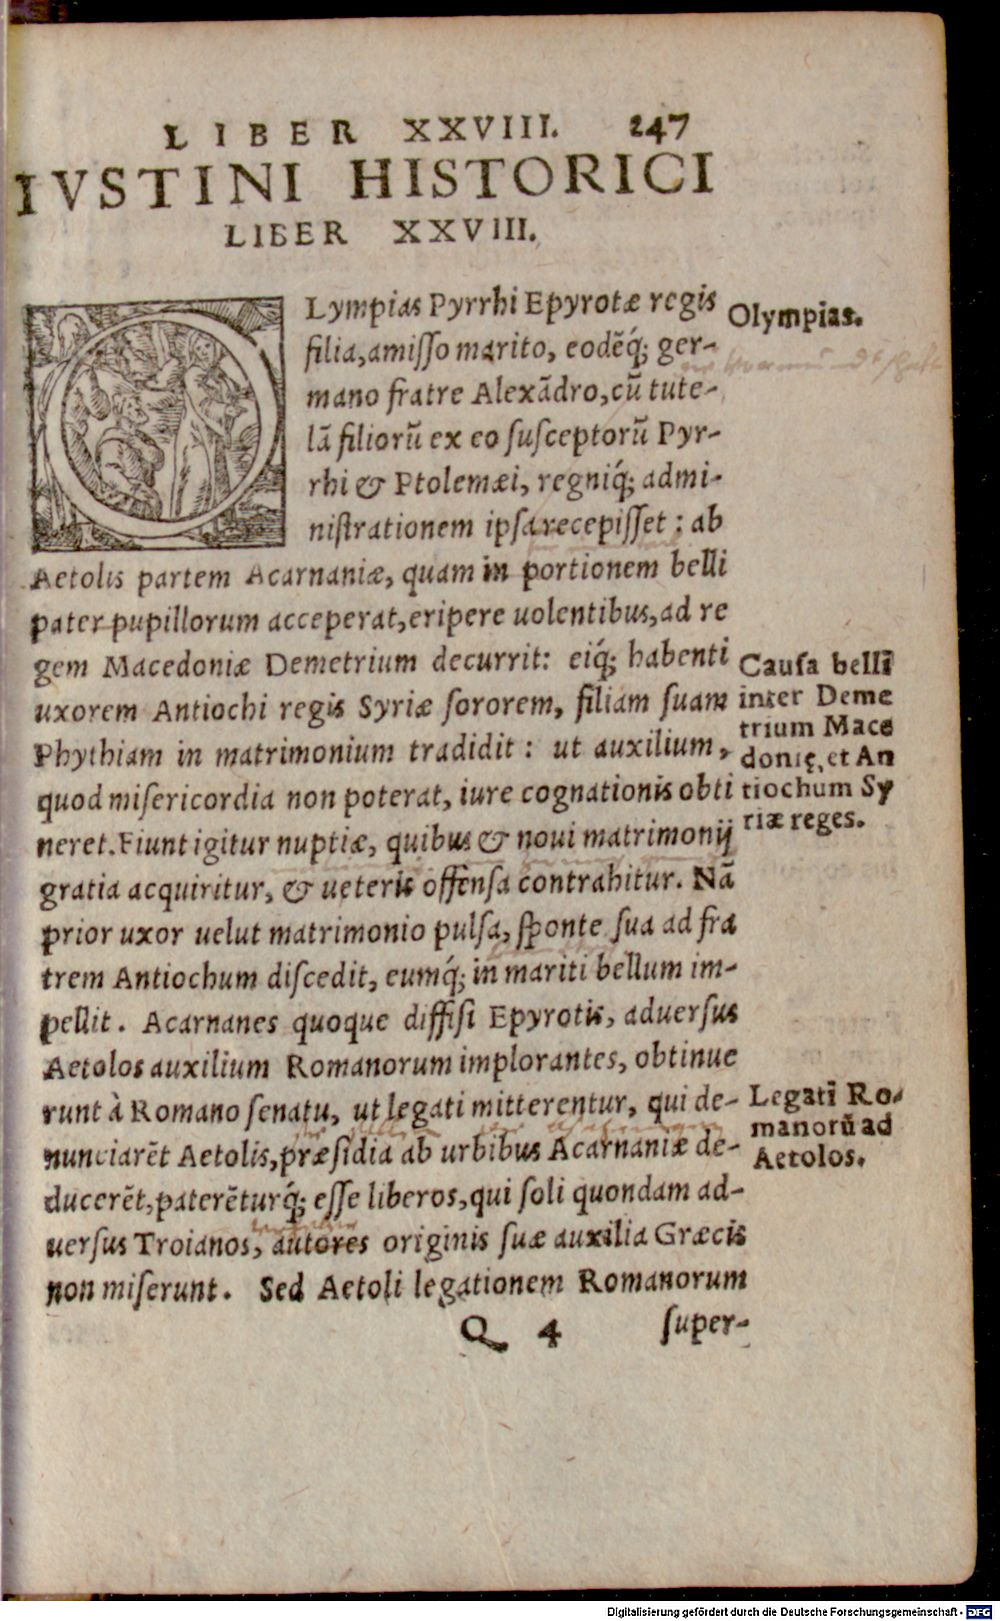 LIBER XXVIII. 247
IVSTINI HISTORICI
LIBER XXVIII.
OLympias Pyrrhi Epyrotæ regis
filia, amiſſo marito, eodẽq́; ger-
mano fratre Alexãdro, cũ tute-
lã filiorũ ex eo ſuſceptorũ Pyr-
rhi & Ptolemæi, regniq́; admi-
niſtrationem ipſa recepiſſet: ab
Aetolis partem Acarnaniæ, quam in portionem belli
pater pupillorum acceperat, eripere uolentibus, ad re
gem Macedoniæ Demetrium decurrit: eiq́; habenti
uxorem Antiochi regis Syriæ ſororem, filiam ſuam
Phythiam in matrimonium tradidit: ut auxilium,
quod miſericordia non poterat, iure cognationis obti
neret. Fiunt igitur nuptiæ, quibus & noui matrimonij
gratia acquiritur, & ueteris offenſa contrahitur. Nã
prior uxor uelut matrimonio pulſa, ſponte ſua ad fra
trem Antiochum diſcedit, eumq́; in mariti bellum im-
pellit. Acarnanes quoque diffiſi Epyrotis, aduerſus
Aetolos auxilium Romanorum implorantes, obtinue
runt à Romano ſenatu, ut legati mitterentur, qui de-
nunciarẽt Aetolis, præſidia ab urbibus Acarnaniæ de-
ducerẽt, paterẽturq́; eſſe liberos, qui ſoli quondam ad-
uerſus Troianos, autores originis ſuæ auxilia Græcis
non miſerunt. Sed Aetoli legationem Romanorum
Q 4 ſuper-
Olympias.
Cauſa belli
inter Deme
trium Mace
donię, et An
tiochum Sy
riæ reges.
Legati Ro-
manorũ ad
Aetolos.
Digitalisierung gefördert durch die Deutsche Forschungsgemeinschaft - DFG